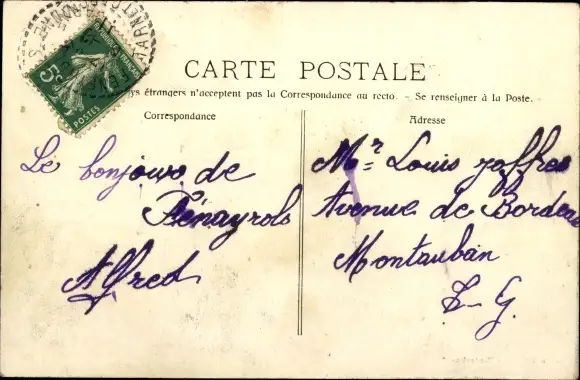 5c
POSTES
CARTE POSTALE
ys étrangers n'acceptent pas la Correspondance au recto. - Se renseigner à la Poste.
Correspondance
Le bonjour de
Pénayrols
Alfred
Adresse
Mr Louis Jaffre
Avenue de Bordeau
Montauban
T-G.